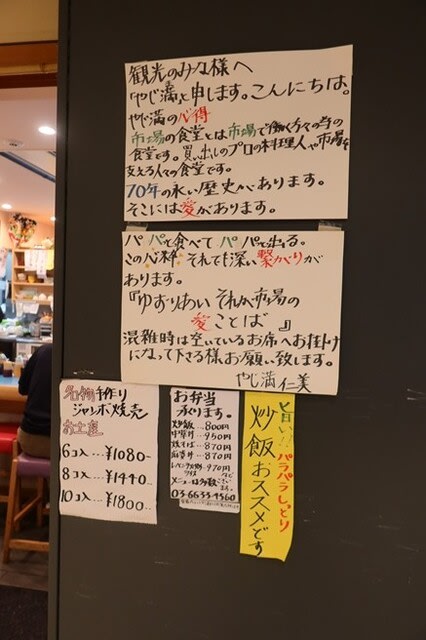 観光のみな様へ
「やじ満」と申します。こんにちは。
やじ満の心得
市場の食堂とは市場で働く方々の為の
食堂です。買い出しのプロの料理人や市場を
支える人々の食堂です。
70年の永い歴史があります。
そこには愛があります。
パパッと食べてパパッと出る。
この心粋 それでも深い繋がりが
あります。
『ゆずりあい それが市場の
愛ことば』
混雑時は空いているお席へお掛け
になって下さる様お願い致します。
やじ満 仁美
名物手作り
ジャンボ焼売
お土産
6コ入…¥1080-
8コ入…¥1440-
10コ入…¥1800-
お弁当
承ります。
炒飯…800円
中華丼…950円
焼そば…870円
麻婆丼…870円
970円
メニューは多数ござい
ます。
03-6633-4560
旨い!!パラパラしっとり
炒飯おススメです